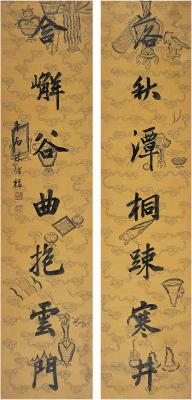 落秋潭桐疎寒井
含嶰谷曲抱雲門